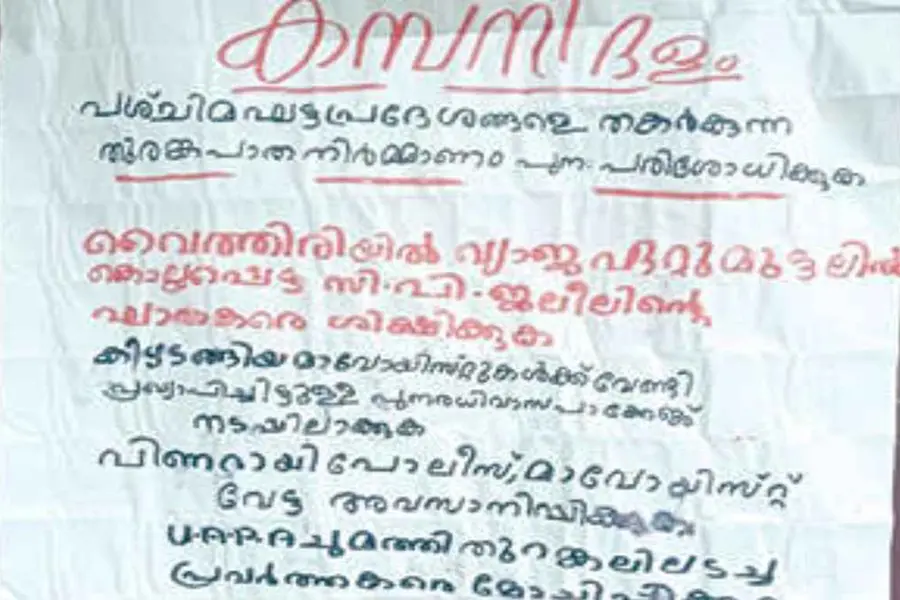 കമ്പനി ദളം
പശ്ചിമഘട്ടപ്രദേശങ്ങളെ തകർക്കുന്ന
തുരങ്കപാത നിർമ്മാണം പുന: പരിശോധിക്കുക
വൈത്തിരിയിൽ വ്യാജ ഏറ്റുമുട്ടലിൽ
കൊല്ലപ്പെട്ട സി.പി.ജലീലിന്റെ
ഘാതകരെ ശിക്ഷിക്കുക
കീഴടങ്ങിയ മാവോയിസ്റ്റുകൾക്ക് വേണ്ടി
പ്രഖ്യാപിച്ചിട്ടുള്ള പുനരധിവാസ പാക്കേജ്
നടപ്പിലാക്കുക
പിണറായി പോലീസ്, മാവോയിസ്റ്റ്
വേട്ട അവസാനിപ്പിക്കുക
U.A.P.A ചുമത്തി തുറങ്കലിലടച്ച
പ്രവർത്തകരെ മോചിപ്പിക്കുക